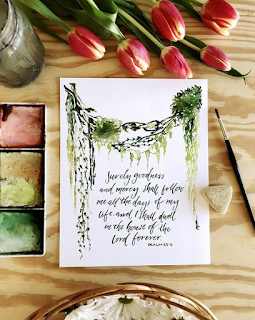 Surely goodness
and mercy shall follow
me all the days of my
life and I shall dwell
in the house of the
Lord forever.
PSALM 23:6